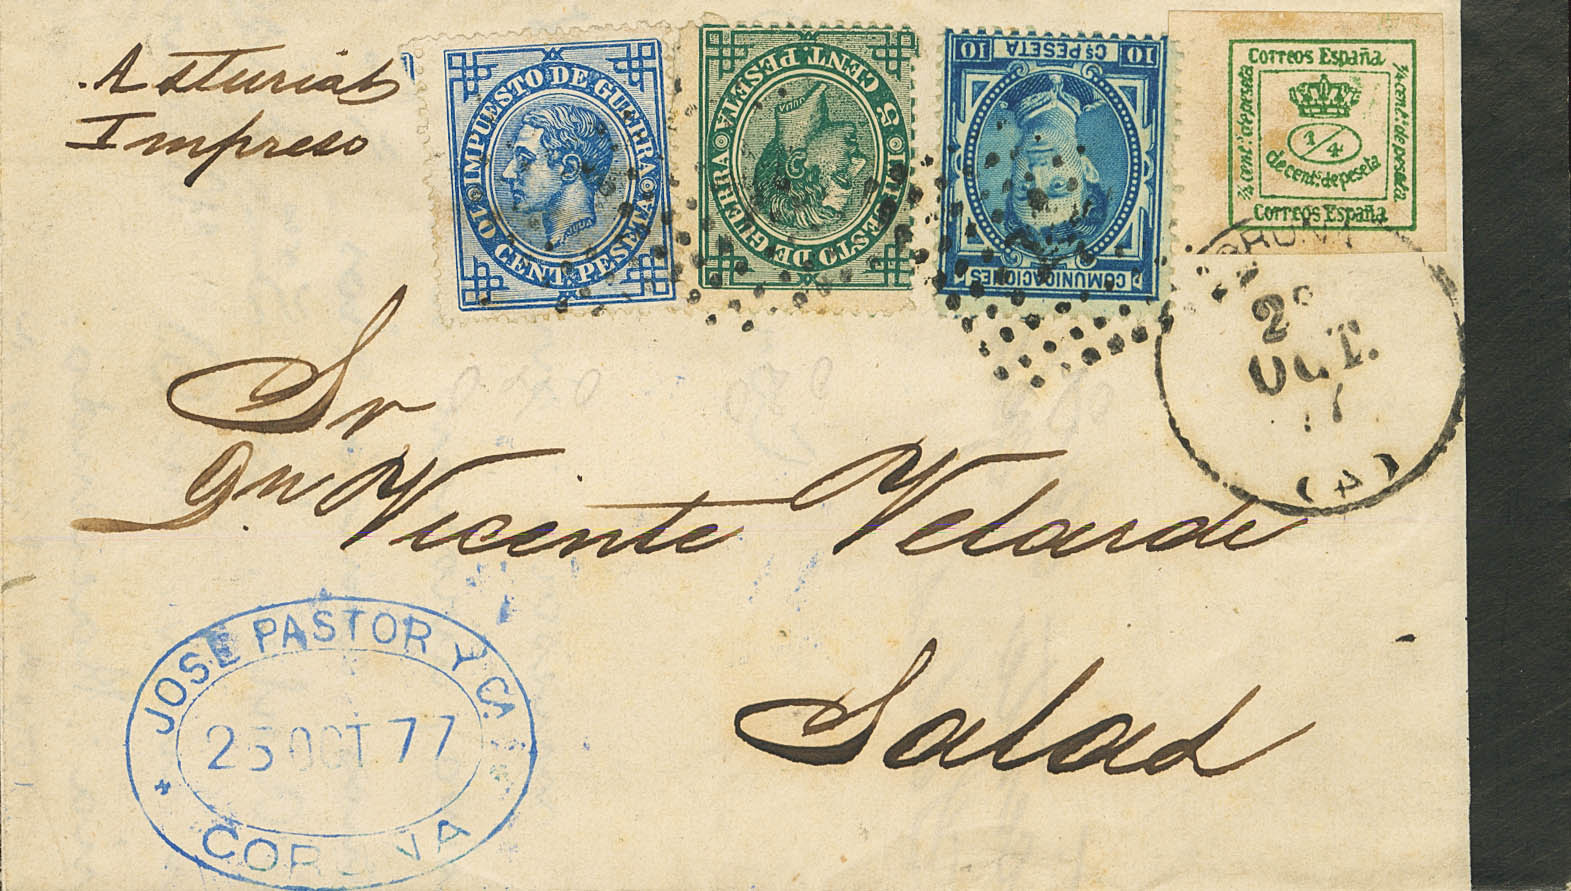 Asturias
Impreso
IMPUESTO DE GUERRA
10 CENT PESETA
IMPUESTO DE GUERRA
5 CENT PESETA
10 Cs PESETA 10
COMUNICACIONES
Correos España
1/4 cent.s de peseta
1/4 cent.s de peseta
1/4
de cent.s de peseta
Correos España
2
OCT.
(4)
Sr
Dn Vicente Velarde
Salas
JOSE PASTOR Y Ca.
25 OCT 77
CORUÑA